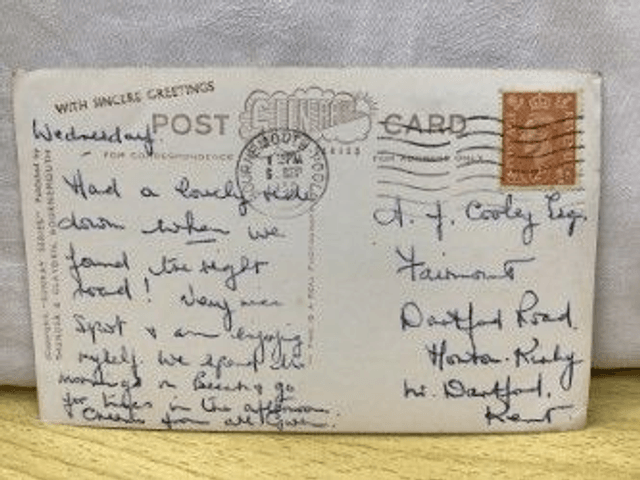 WITH SINCERE GREETINGS
POST CARD
SUNRAY
SERIES
FOR CORRESPONDENCE
FOR ADDRESS ONLY
BOURNEMOUTH POOLE
SEP
Wednesday.
Had a lovely ride
down when we
found the right
road! Very nice
Spot & am enjoying
myself. We spend the
mornings on Beach & go
for trips in the afternoon.
Cheerio from all
A. J. Cooley Esq.
Fairmount
Dartford Road.
Horton-Kirby
nr. Dartford,
Kent.
THUNDER & CLAYDEN, BOURNEMOUTH